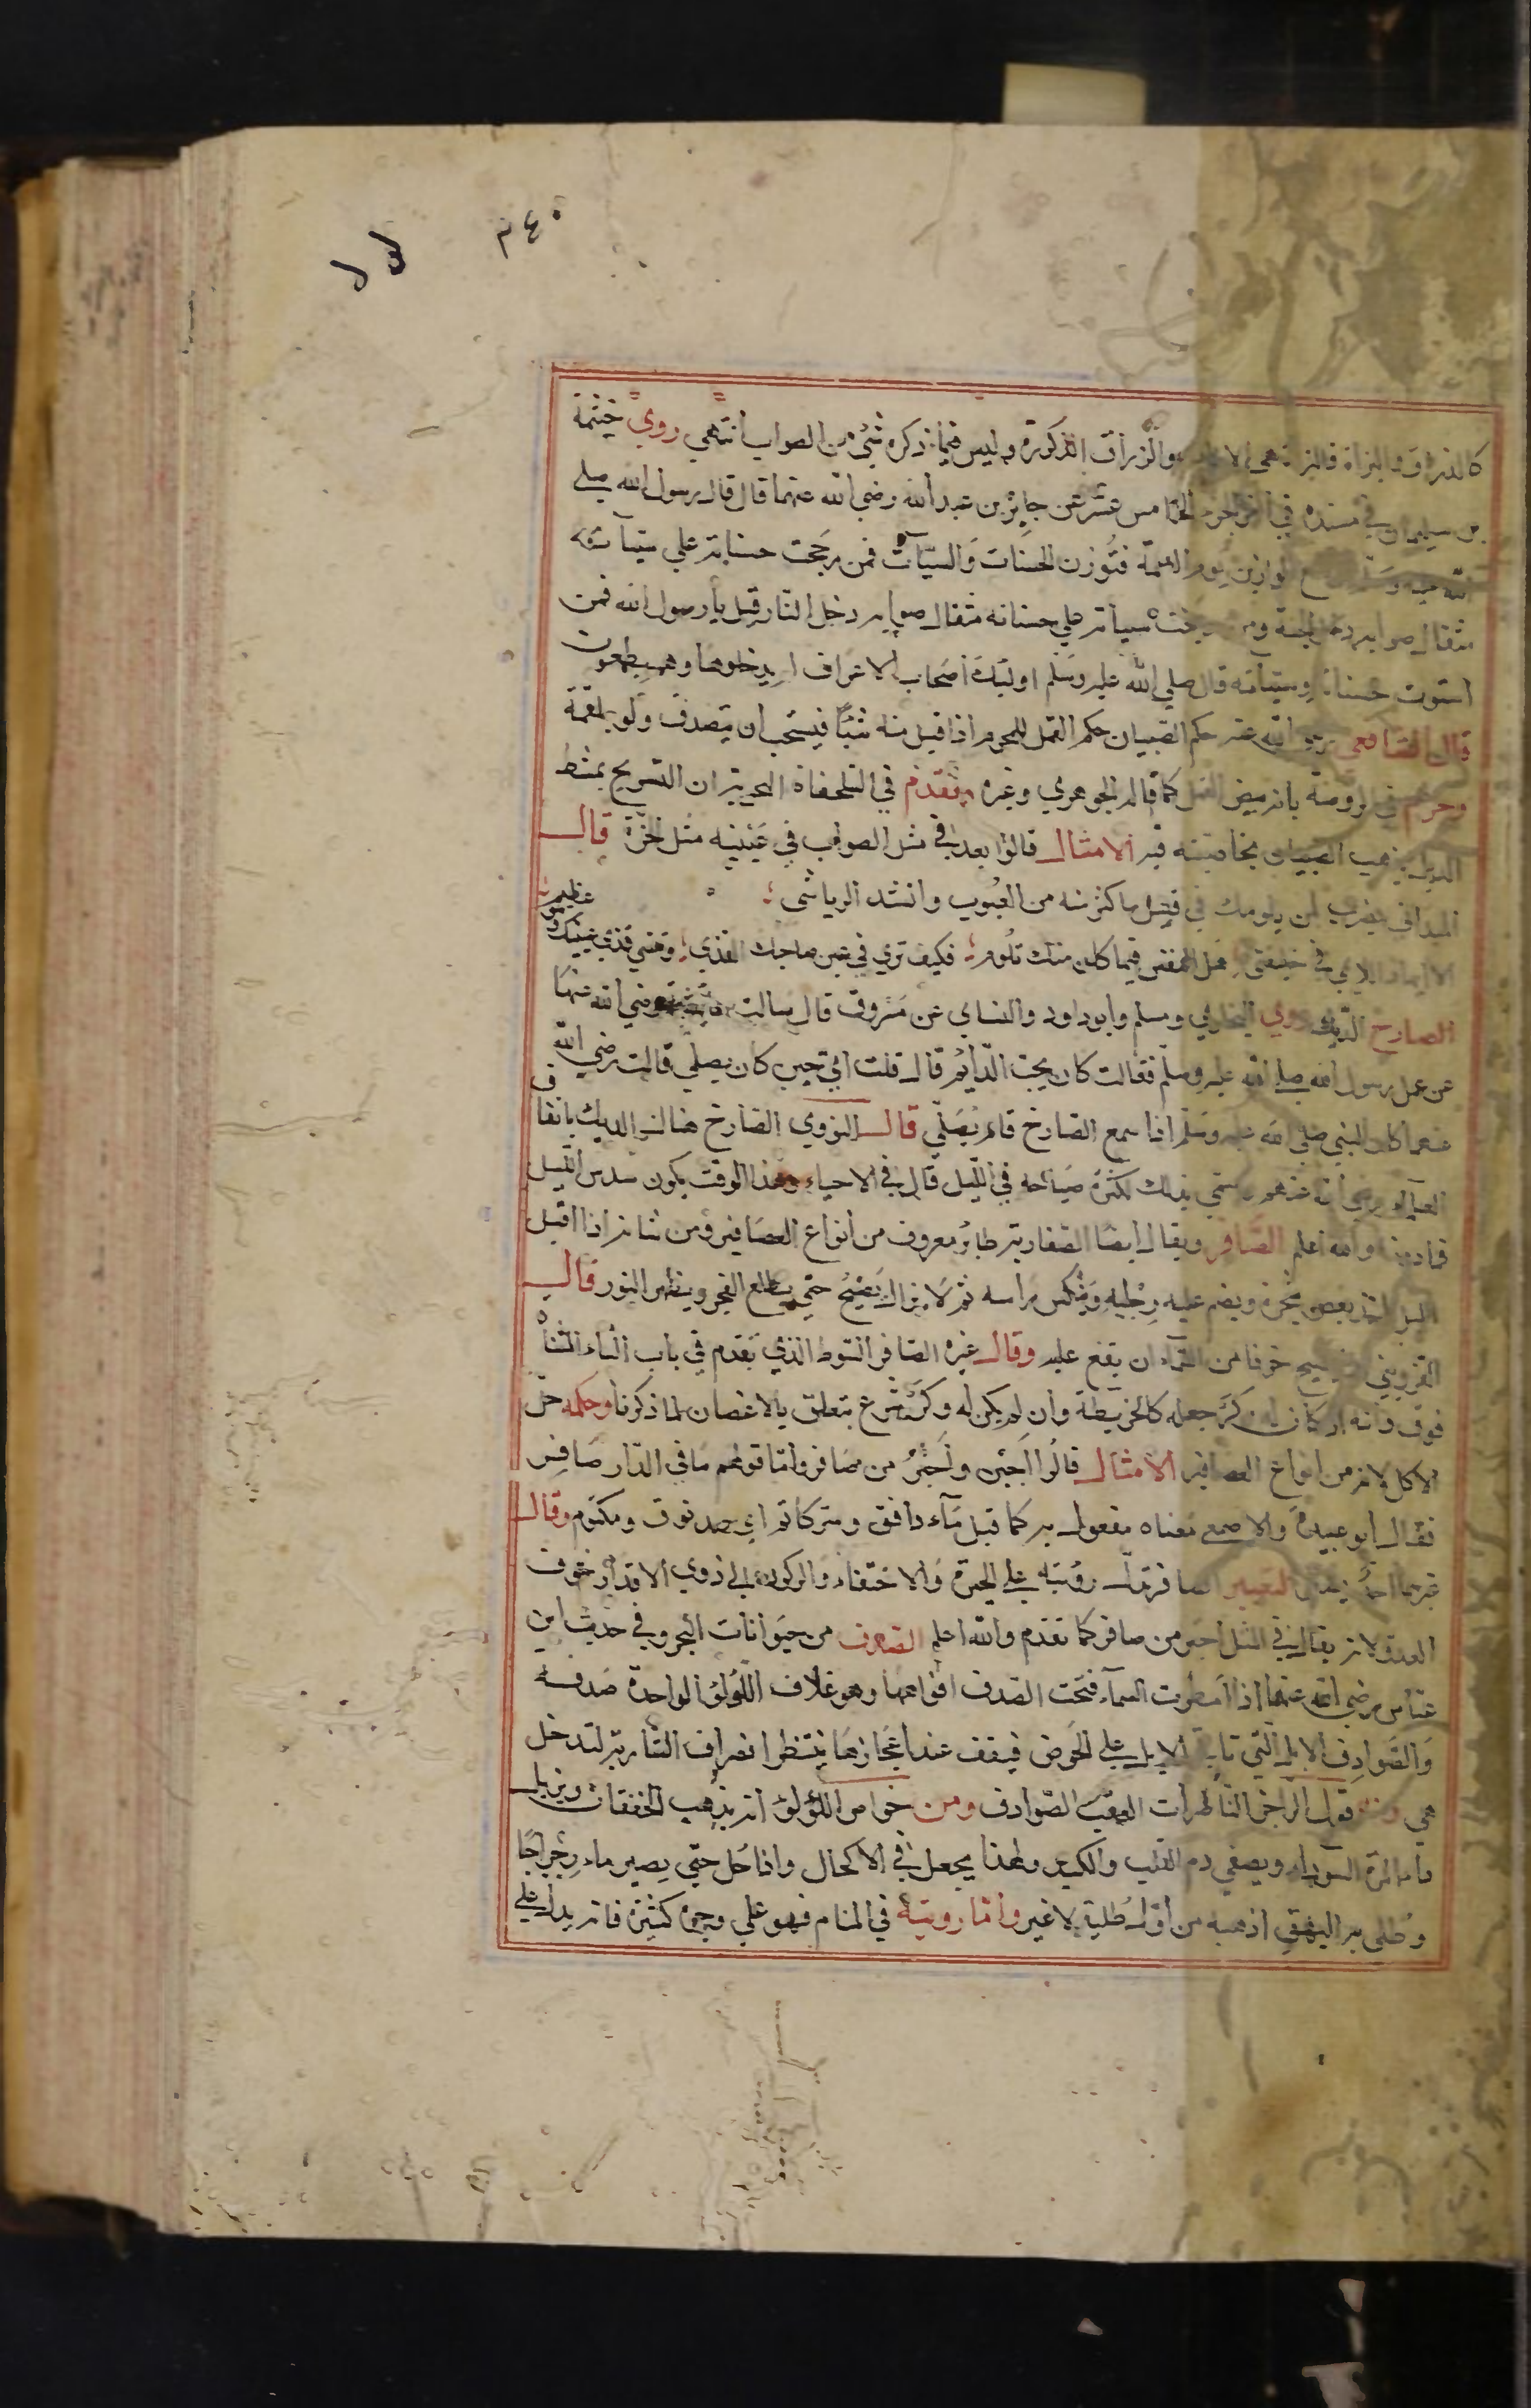 ٣٤٠
كالزراق والبزاة فالبزاة هي الاناث والزراق الذكورة وليس فيما ذكره شئ من الصواب انتهي روي خيثمة
بن سليمان في مسنده في اخر الجزء الخامس عشر عن جابر بن عبد الله رضي الله عنهما قال قال رسول الله صلي
الله عليه وسلم توضع الموازين يوم القيمة فتوزن الحسنات والسيآت فمن رجحت حسناته علي سيآته
مثقال صوابه دخل الجنة ومن رجحت سيآته علي حسناته مثقال صوابه دخل النار قيل يا رسول الله فمن
استوت حسناته وسيآته قال صلي الله عليه وسلم اولئك اصحاب الاعراف لم يدخلوها وهم يطمعون
قال الشافعي رضي الله عنه حكم الصيبان حكم القمل للمحرم اذا قتل منه شيئا فيستحب ان يتصدق ولو بلقمة
وجزم في الروضة بانه بيض القمل كما قاله الجوهري وغيره وتقدم في السلحفاة البحرية ان التسريح بمشط
الذبل يذهب الصيبان بخاصيته فيه الامثال قالوا يعد في مثل الصواب في عينيه مثل الجرة قال
الميداني يضرب لمن يلومك في قليل ما كثر منه من العيوب وانشد الرياشي
الا ايها اللايمي في خليقتي هل النفس فيما كان منك تلوم فكيف تري في عين صاحبك القذي وتنسي قذي عينيك وهو عظيم
الصارخ الديك روي البخاري ومسلم وابو داود والنساي عن مسروق قال سالت عايشة رضي الله عنها
عن عمل رسول الله صلي الله عليه وسلم فقالت كان يحب الدايم قال قلت اي حين كان يصلي قالت رضي الله
عنها كان النبي صلي الله عليه وسلم اذا سمع الصارخ قام يصلي قال النووي الصارخ هنا الديك باتفاق
العلماء رضي الله عنهم وسمي بذلك لكثرة صياحه في الليل قال في الاحياء وهذا الوقت يكون سدس الليل
فما دونه والله اعلم الصافر ويقال ايضا الصفارية طائر معروف من انواع العصافير ومن شانه اذا اقبل
الليل اخذ بغصن شجرة ويضم عليه رجليه وينكس راسه ثم لا يزال يصيح حتي يطلع الفجر ويظهر النور قال
القزويني انه يصيح خوفا من السماء ان يقع عليه وقال غيره الصافر التنوط الذي تقدم في باب التاء المثناة
فوق وانه ان كان له وكر جعله كالخريطة وان لم يكن له وكر شرع يتعلق بالاغصان لما ذكرنا وحكمه حل
الاكل لانه من انواع العصافير الامثال قالوا اجبن واحير من صافر واما قولهم ما في الدار صافر
فقال ابو عبيدة والاصمعي معناه مفعول به كما قيل مآء دافق وسر كاتم اي مدفوق ومكتوم وقال
غيرهما احد يصفر التعبير الصافر تدل رؤيته علي الحيرة والاختفاء والركون الي ذوي الاقدار خوف
العدو لانه يقال في المثل احير من صافر كما تقدم والله اعلم الصدف من حيوانات البحر وفي حديث ابن
عباس رضي الله عنهما اذا امطرت السمآء فتحت الصدف افواهها وهو غلاف اللؤلؤ الواحدة صدفة
والصوادف الابل التي تاتي الابل علي الحوض فيقف عند اعجازها ينتظر انصراف الشاربة لتدخل
هي ومنه قول الراجز الناظرات العقب الصوادف ومن خواص اللؤلؤ انه يذهب الخفقان ويزيل
داء المرة السوداء ويصفي دم القلب والكبد ولهذا يجعل في الاكحال واذا حل حتي يصير ماء رجراجا
وطلي به البهق اذهبه من اول طلية لا غير واما رويته في المنام فهو علي وجوه كثيرة فانه يدل علي